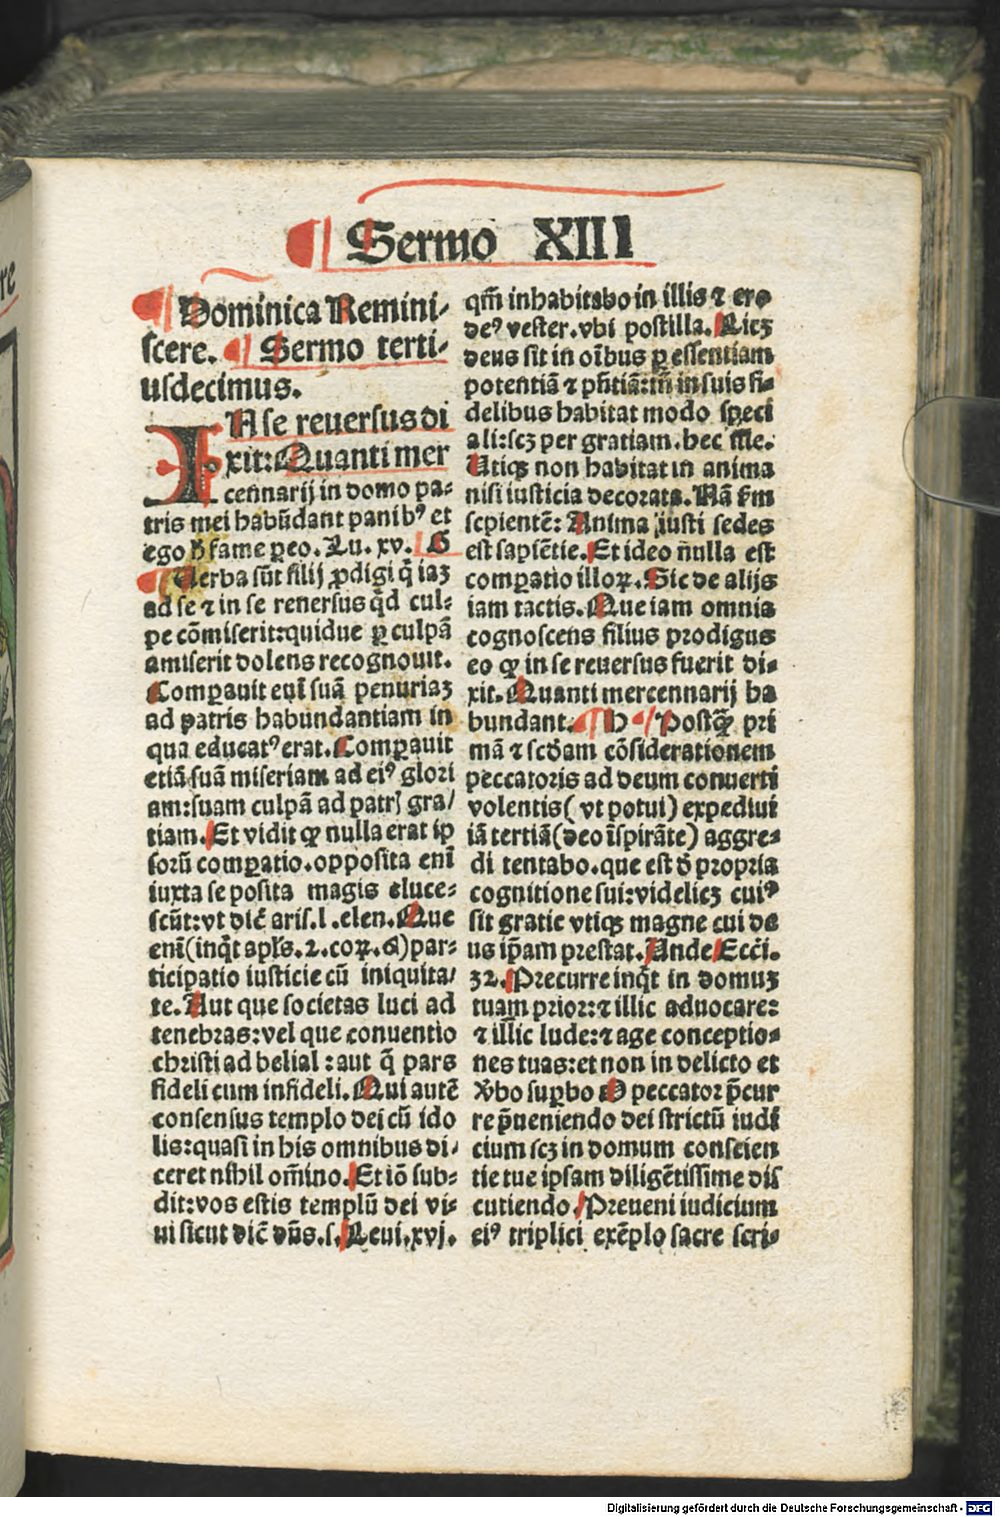 ¶ Sermo XIII
¶ Dominica Remini-
scere. ¶ Sermo terti-
usdecimus.
IN se reuersus di
xit: Quanti mer
cennarij in domo pa-
tris mei habūdant panibꝰ et
ego h̄ fame ꝑeo. Lu. xv. G
¶ Uerba sūt filij ꝓdigi q̄ iaꝫ
ad se ⁊ in se renersus qḋ cul-
pe cōmiserit: quidue ꝑ culpā
amiserit dolens recognouit.
Comꝑauit eni̅ suā penuriaꝫ
ad patris habundantiam in
qua educatꝰ erat. Comꝑauit
etiā suā miseriam ad eiꝰ glori
am: suam culpā ad patrꝭ gra/
tiam. Et vidit ꝙ nulla erat ip
soru̅ comꝑatio. opposita eni̅
iuxta se posita magis eluce-
scūt: vt dic̄ aris. l. elen. Que
eni̅ (inq̇t apl̄s. 2. coꝝ. 6) par-
ticipatio iusticie cū iniquita/
te. Aut que societas luci ad
tenebras: vel que conuentio
christi ad belial: aut q̄ pars
fideli cum infideli. Qui autē
consensus templo dei cū ido
lis: quasi in his omnibus di/
ceret nihil om̄ino. Et iō sub-
dit: vos estis templū dei vi-
ui sicut dic̄ dn̄s. s. Leui. xvj.
qm̄ inhabitabo in illis ⁊ ero
deꝰ vester. vbi postilla. Licꝫ
deus sit in oi̅bus ꝑ essentiam
potentiā ⁊ pn̄tiā: tn̄ in suis fi-
delibus habitat modo speci
ali: scꝫ per gratiam. hec ille.
Utiqꝫ non habitat in anima
nisi iusticia decorata. Nā ẜm
sepientē: Anima iusti sedes
est sapiētie. Et ideo nulla est
comꝑatio illoꝝ. Sic de alijs
iam tactis. Que iam omnia
cognoscens filius prodigus
eo ꝙ in se reuersus fuerit di-
xit. Quanti mercennarij ha
bundant. ¶ H ¶ Postꝙ̄ pri
mā ⁊ scḋam cōsiderationem
peccatoris ad deum conuerti
volentis (vt potui) expediui
iā tertiā (deo i̅spirāte) aggre-
di tentabo. que est ď propria
cognitione sui: videlicꝫ cuiꝰ
sit gratie vtiqꝫ magne cui de
us ip̄am prestat. Unde Ecci̅.
32. Precurre inq̇t in domuꝫ
tuam prior: ⁊ illic aduocare:
⁊ illic lude: ⁊ age conceptio-
nes tuas: et non in delicto et
v̓bo suꝑbo O peccator p̄cur
re p̄ueniendo dei strictū iudi
cium scꝫ in domum conscien
tie tue ipsam diligētissime dis
cutiendo. Preueni iudicium
eiꝰ triplici exēplo sacre scri-
Digitalisierung gefördert durch die Deutsche Forschungsgemeinschaft - DFG